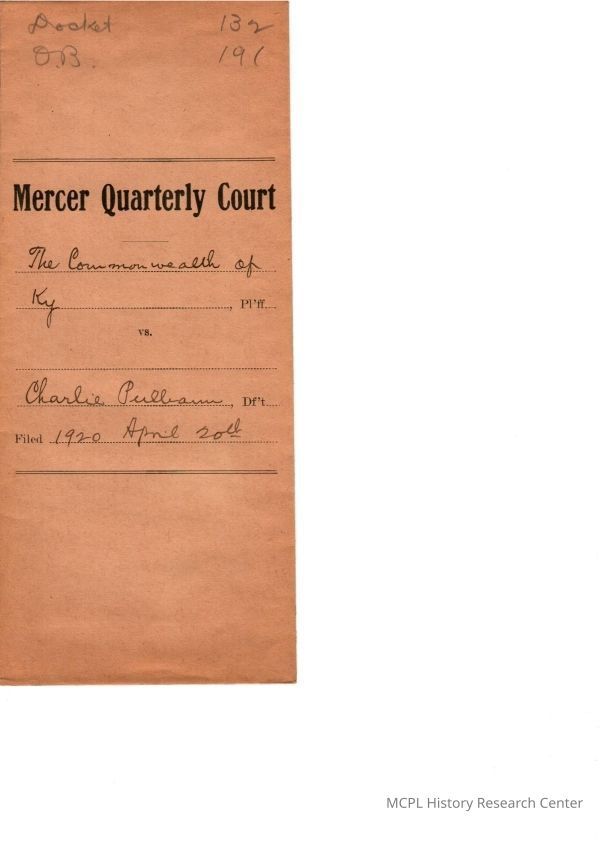 Docket 132
O.B. 191
Mercer Quarterly Court
The Commonwealth of
Ky, Pl'ff.
vs.
Charlie, Df't.
Filed 1920 April 20th
MCPL History Research Center